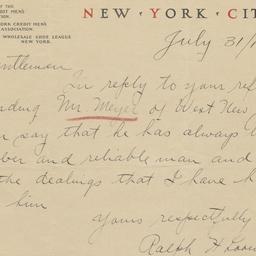 OF THE
DIT MEN'S
TION.
ORK CREDIT MEN'S
ASSOCIATION.
WHOLESALE SHOE LEAGUE
NEW YORK.
NEW · YORK · CIT
July 31/1
entlemen
In reply to your ref
nding Mr. Meyer of West New
n say that he has always b
ber and reliable man and
the dealings that I have h
him
Yours respectfully
Ralph H